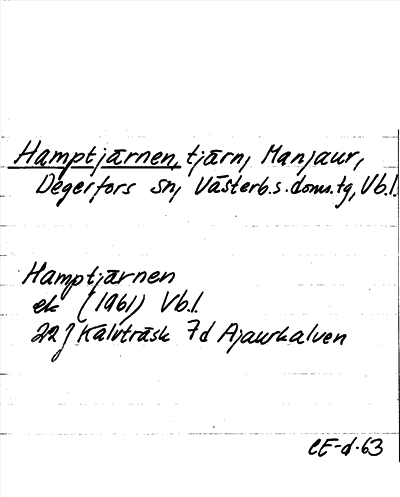 Hamptjärnen, tjärn, Manjaur,
Degerfors sn, Västerb.s.doms.tg, Vb.l.
Hamptjärnen
ek (1961) Vb.l.
22 J Kalvträsk 7d Ajaurkalven
CE-d-63